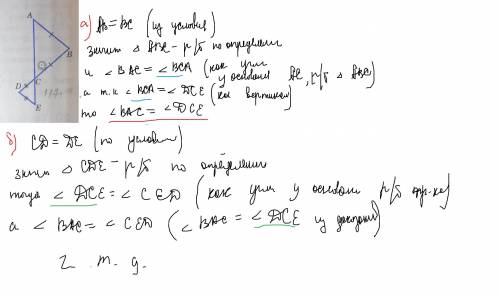 A
B
D
C
E
а) AB = BC (из условия)
значит △ ABC - р/б по определен
и ∠ BAC = ∠ BCA (как угли
у основания AC, р/б △ ABC)
а т.к ∠ BCA = ∠ DCE (ка вертикал
то ∠ BAC = ∠ DCE
б) CD = DE (по условию)
значит △ CDE - р/б по определен
тогда ∠ DCE = ∠ CED (как угли у основан р/б
а ∠ BAC = ∠ CED (∠ BAC = ∠ DCE из
Ч. т. д.